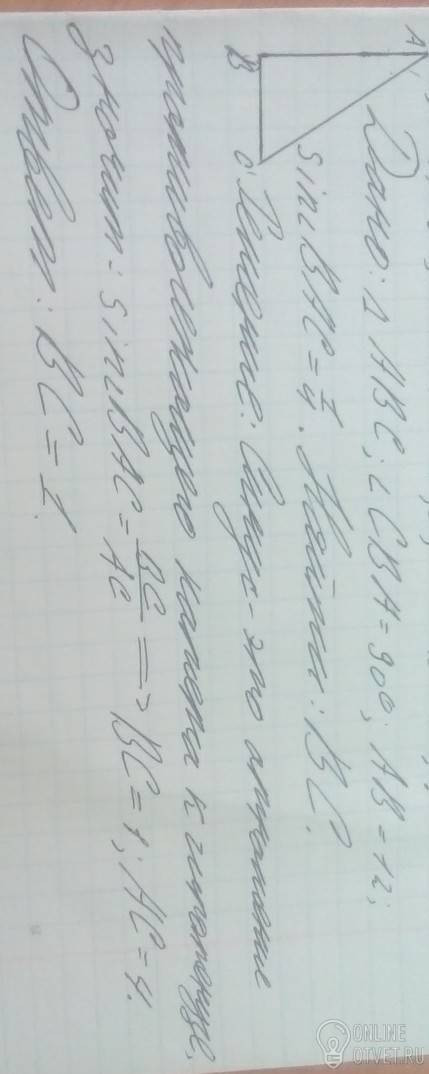 A
B
C
Дано: ∆ ABC; ∠CBA = 90°; AB = 12;
sin BAC = 1/4. Найти: BC.
Решение: Синус - это отношение
противолежащего катета к гипотенузе,
значит: sin BAC = BC/AC => BC = 1; AC = 4.
Ответ: BC = 1.
ONLINE
OTVET.RU